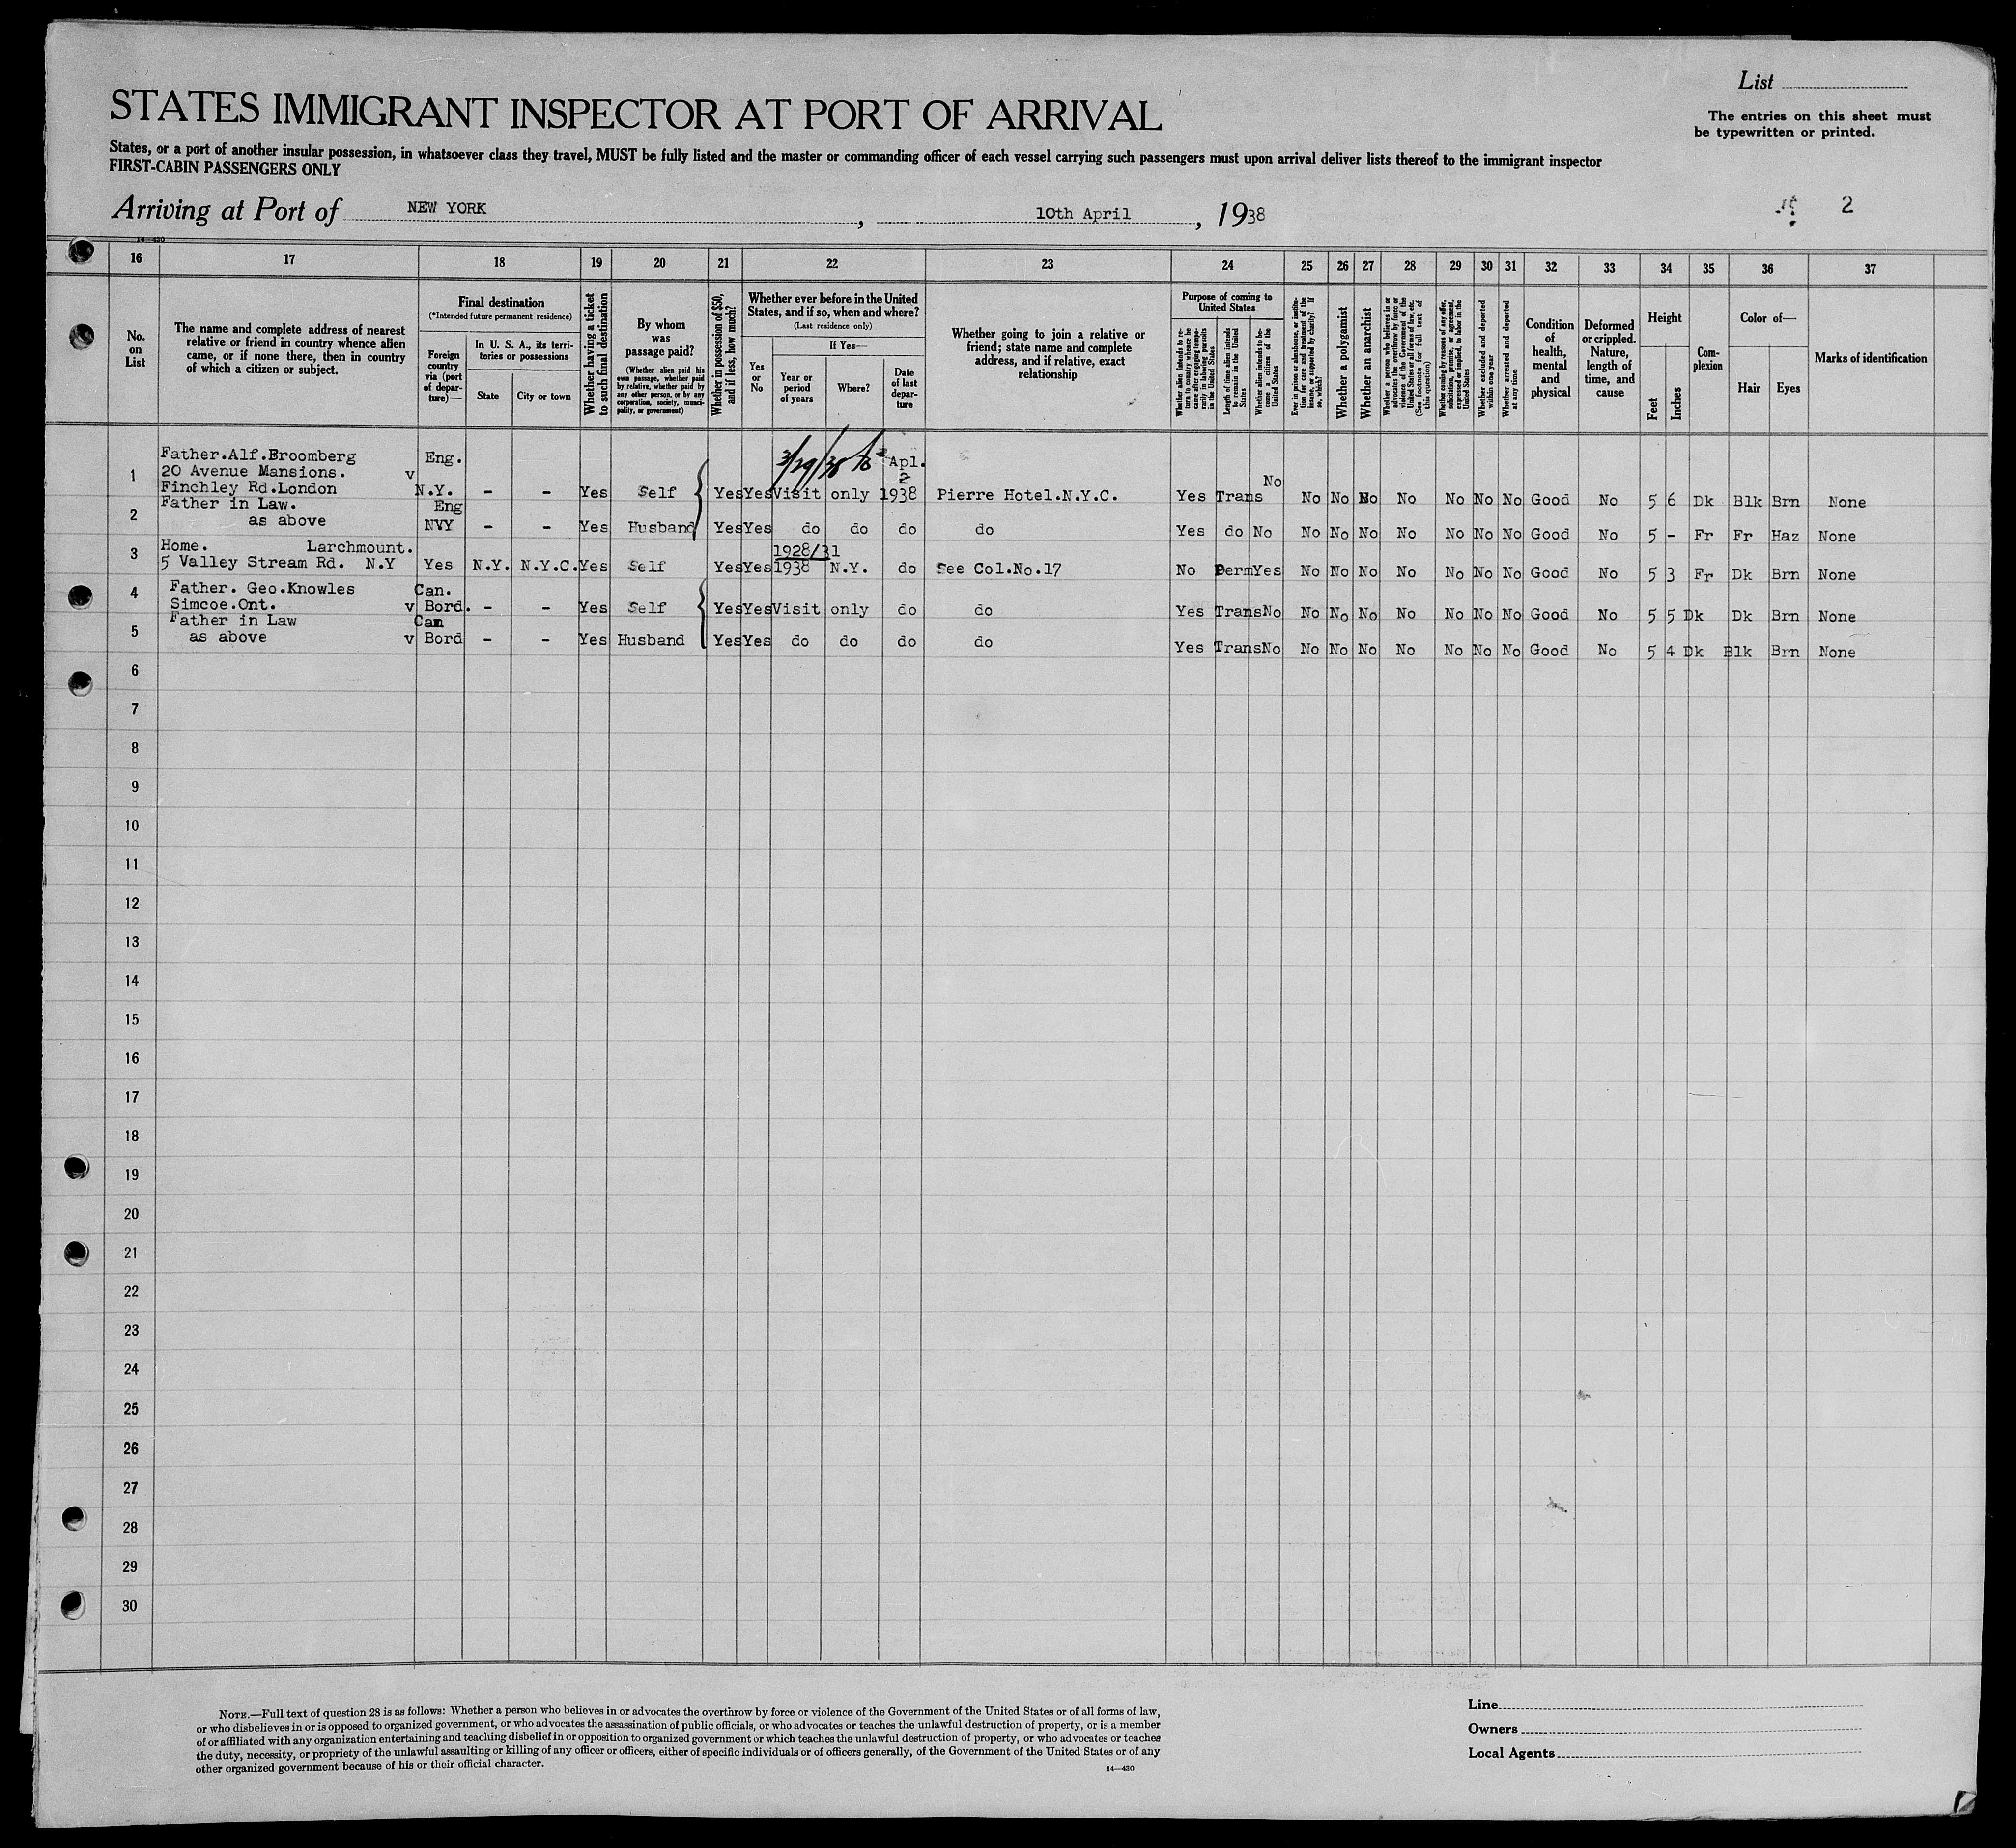 List
STATES IMMIGRANT INSPECTOR AT PORT OF ARRIVAL
The entries on this sheet must
be typewritten or printed.
States, or a port of another insular possession, in whatsoever class they travel, MUST be fully listed and the master or commanding officer of each vessel carrying such passengers must upon arrival deliver lists thereof to the immigrant inspector
FIRST-CABIN PASSENGERS ONLY
Arriving at Port of NEW YORK , 10th April , 1938
2
14—430
16 17 18 19 20 21 22 23 24 25 26 27 28 29 30 31 32 33 34 35 36 37
No. on List
The name and complete address of nearest
relative or friend in country whence alien
came, or if none there, then in country
of which a citizen or subject.
Final destination
(*Intended future permanent residence)
Foreign country via (port of departure)—
In U. S. A., its territories or possessions
State
City or town
Whether having a ticket to such final destination
By whom was passage paid?
(Whether alien paid his own passage, whether paid by relative, whether paid by any other person, or by any corporation, society, municipality, or government)
Whether in possession of $50, and if less, how much?
Whether ever before in the United States, and if so, when and where?
(Last residence only)
Yes or No
If Yes—
Year or period of years
Where?
Date of last departure
Whether going to join a relative or
friend; state name and complete
address, and if relative, exact
relationship
Purpose of coming to United States
Whether alien intends to return to country whence he came after engaging temporarily in laboring pursuits in the United States
Length of time alien intends to remain in the United States
Whether alien intends to become a citizen of the United States
Ever in prison or almshouse, or institution for care and treatment of the insane, or supported by charity? If so, which?
Whether a polygamist
Whether an anarchist
Whether a person who believes in or advocates the overthrow by force or violence of the Government of the United States or all forms of law, etc. (See footnote for full text of this question)
Whether coming by reason of any offer, solicitation, promise, or agreement, expressed or implied, to labor in the United States
Whether excluded and deported within one year
Whether arrested and deported at any time
Condition of health, mental and physical
Deformed or crippled. Nature, length of time, and cause
Height
Feet
Inches
Complexion
Color of—
Hair
Eyes
Marks of identification
3/29/38
1 Father.Alf.Broomberg Eng. Apl.
20 Avenue Mansions. v 2
Finchley Rd.London N.Y. - - Yes Self Yes Yes Visit only 1938 Pierre Hotel.N.Y.C. Yes Trans No No No No No No No No Good No 5 6 Dk Blk Brn None
2 Father in Law. Eng
as above NVY - - Yes Husband Yes Yes do do do do Yes do No No No No No No No No Good No 5 - Fr Fr Haz None
3 Home. Larchmount. 1928/31
5 Valley Stream Rd. N.Y Yes N.Y. N.Y.C. Yes Self Yes Yes 1938 N.Y. do See Col.No.17 No Perm Yes No No No No No No No Good No 5 3 Fr Dk Brn None
4 Father. Geo.Knowles Can.
Simcoe.Ont. v Bord. - - Yes Self Yes Yes Visit only do do Yes Trans No No No No No No No No Good No 5 5 Dk Dk Brn None
5 Father in Law Can
as above v Bord - - Yes Husband Yes Yes do do do do Yes Trans No No No No No No No No Good No 5 4 Dk Blk Brn None
6
7
8
9
10
11
12
13
14
15
16
17
18
19
20
21
22
23
24
25
26
27
28
29
30
NOTE.—Full text of question 28 is as follows: Whether a person who believes in or advocates the overthrow by force or violence of the Government of the United States or of all forms of law,
or who disbelieves in or is opposed to organized government, or who advocates the assassination of public officials, or who advocates or teaches the unlawful destruction of property, or is a member
of or affiliated with any organization entertaining and teaching disbelief in or opposition to organized government or which teaches the unlawful destruction of property, or who advocates or teaches
the duty, necessity, or propriety of the unlawful assaulting or killing of any officer or officers, either of specific individuals or of officers generally, of the Government of the United States or of any
other organized government because of his or their official character.
14—430
Line
Owners
Local Agents